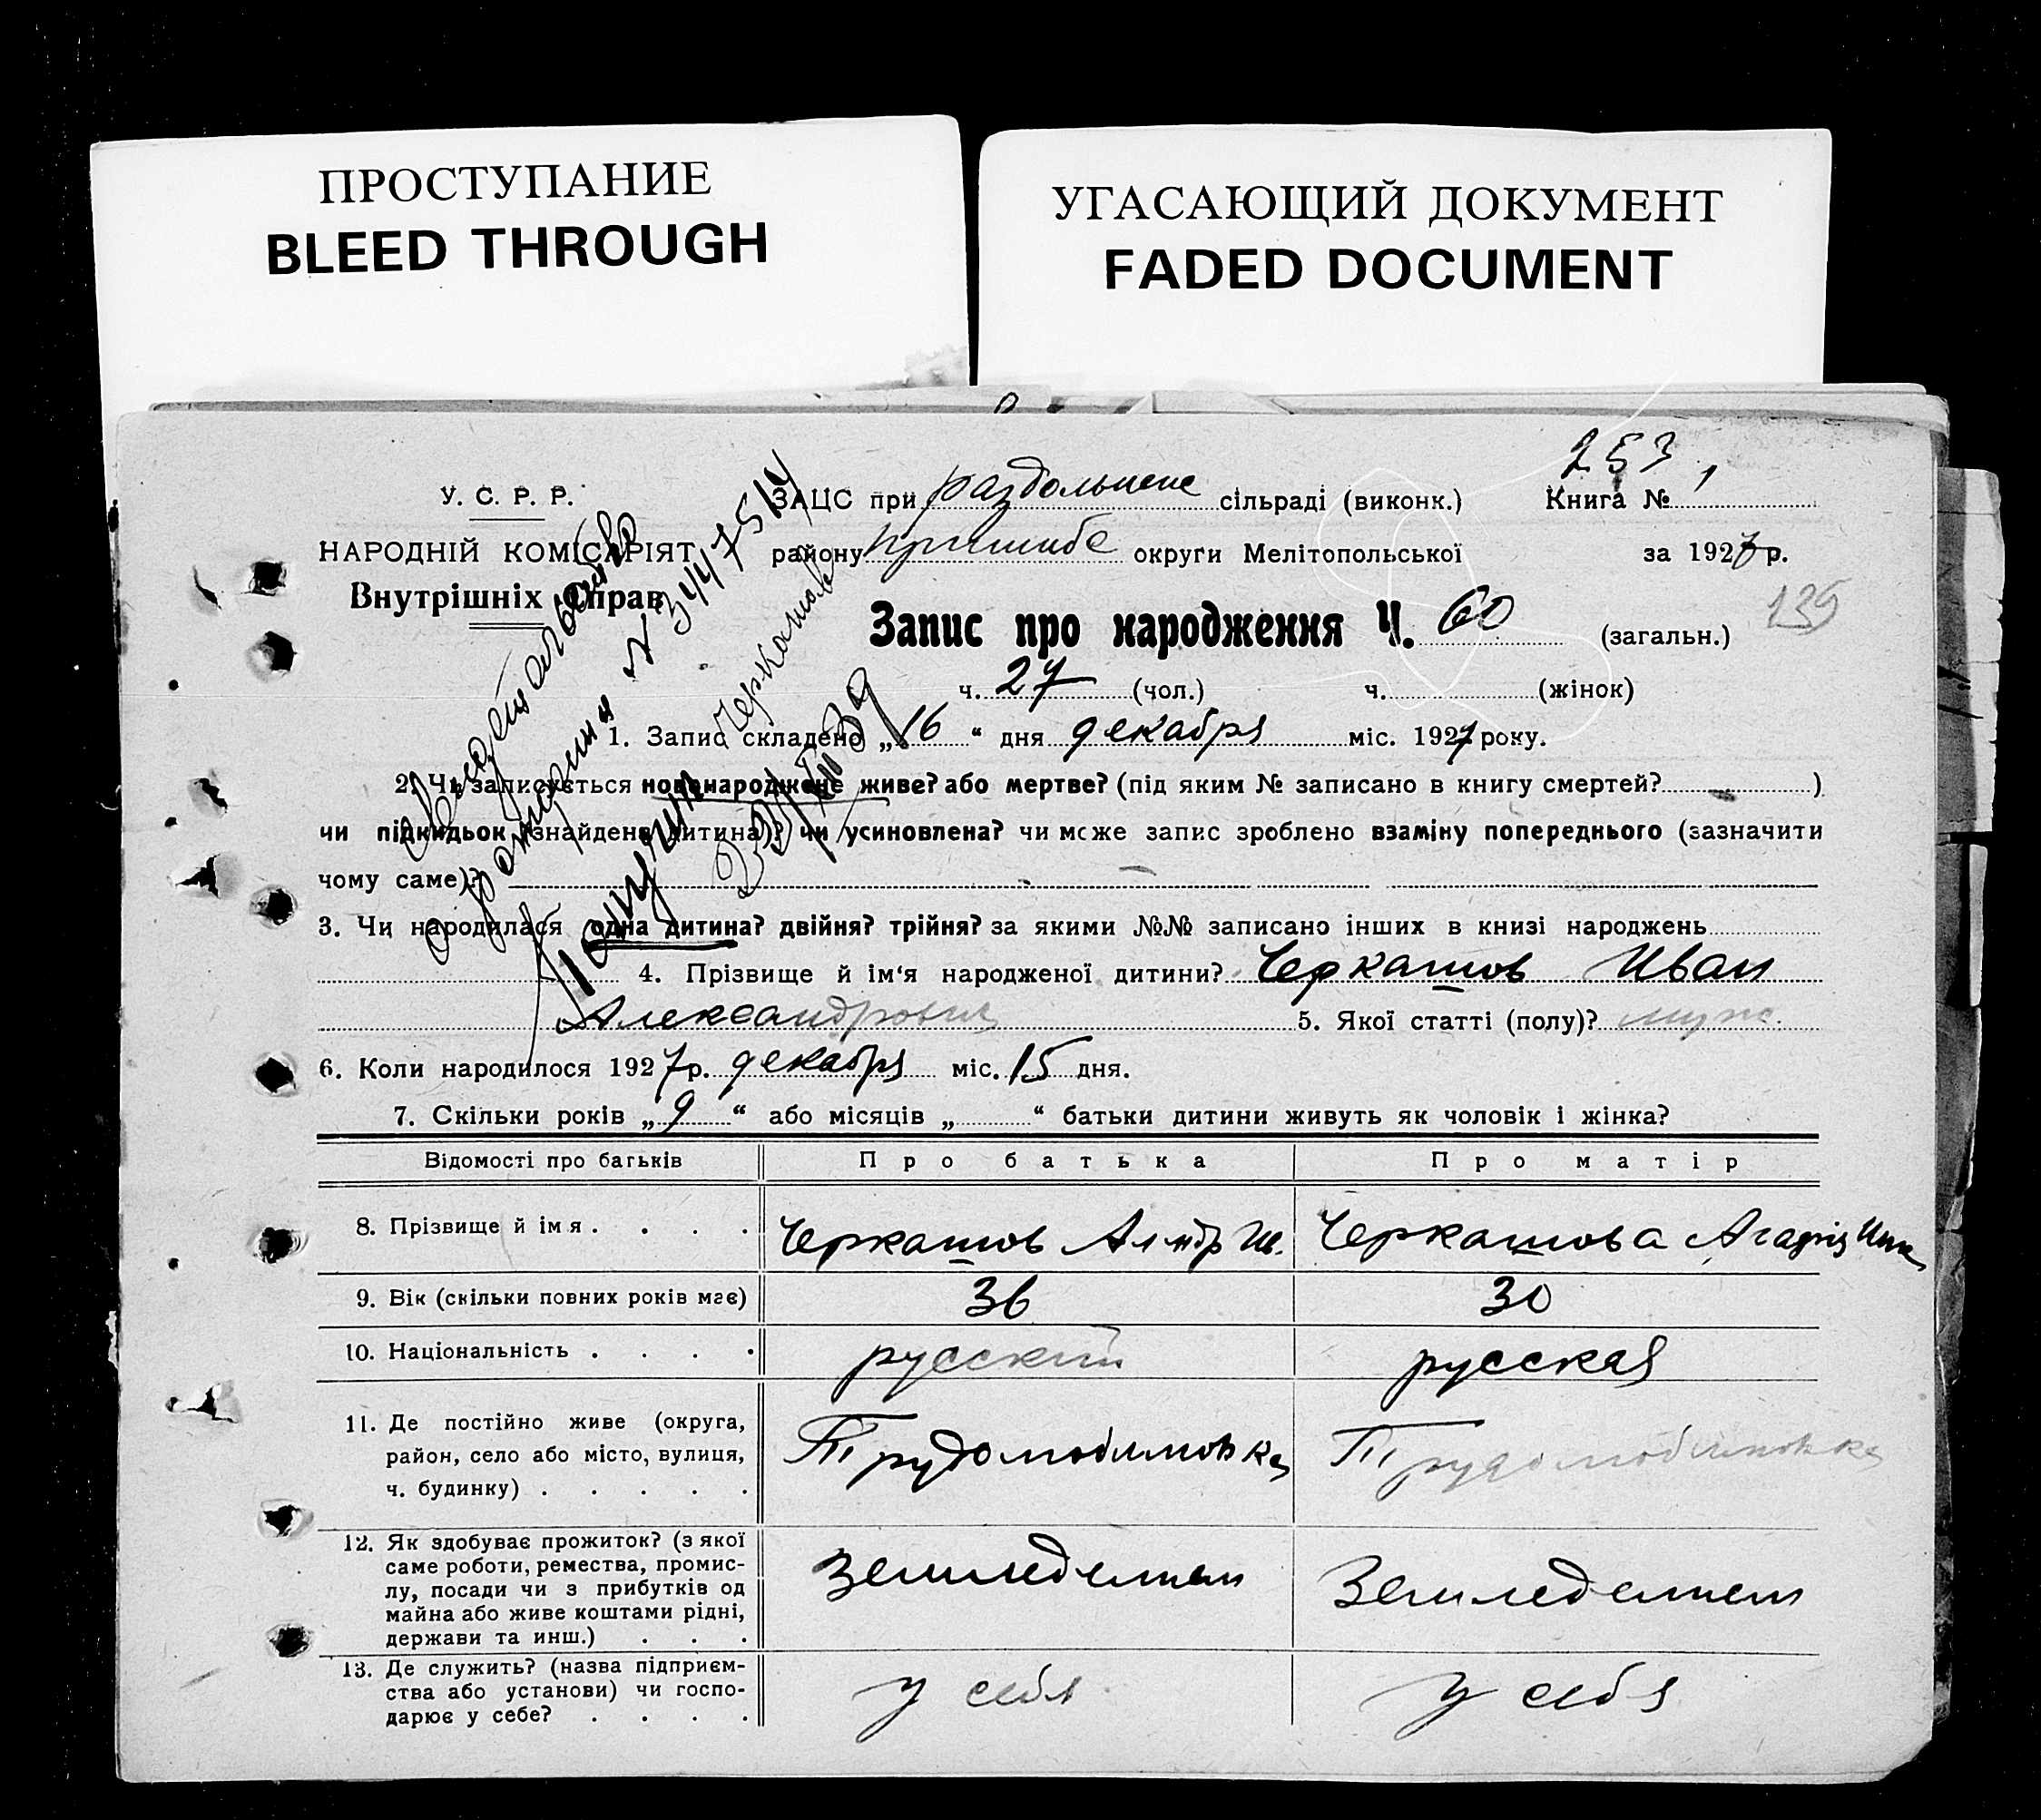 ПРОСТУПАНИЕ
BLEED THROUGH
УГАСАЮЩИЙ ДОКУМЕНТ
FADED DOCUMENT
253
У. С. Р. Р.
НАРОДНІЙ КОМІСАРІЯТ
Внутрішніх Справ
ЗАЦС при раздольнене сільраді (виконк.) Книга № 1
району пришибе округи Мелітопольської за 1927 р.
Запис про народження Ч. 60 (загальн.) 135
ч. 27 (чол.) ч. (жінок)
Свидетельство
о рождении N
Черкашов
1. Запис складено „16“ дня декабря міс. 1927 року.
2. Чи записується новонароджене живе? або мертве? (під яким № записано в книгу смертей? )
чи підкидьок (знайдена дитина)? чи усиновлена? чи може запис зроблено взаміну попереднього (зазначити
чому саме)?
3. Чи народилася одна дитина? двійня? трійня? за якими №№ записано інших в книзі народжень
4. Прізвище й ім‘я народженої дитини? Черкашов Иван
Александрович 5. Якої статті (полу)? муж.
6. Коли народилося 1927 р. декабря міс. 15 дня.
7. Скільки років „9“ або місяців „ “ батьки дитини живуть як чоловік і жінка?
Відомості про батьків Про батька Про матір
8. Прізвище й імя . . . . Черкашов Алндр Ив. Черкашова Агафия
9. Вік (скільки повних років має) 36 30
10. Національність . . . . русский русская
11. Де постійно живе (округа,
район, село або місто, вулиця,
ч. будинку) . . . . .
Трудолюбимовка Трудолюбимовка
12. Як здобуває прожиток? (з якої
саме роботи, ремества, промис-
лу, посади чи з прибутків од
майна або живе коштами рідні,
держави та инш.) . . .
Земледелием Земледелием
13. Де служить? (назва підприєм-
ства або установи) чи госпо-
дарює у себе? . . . .
у себя у себя